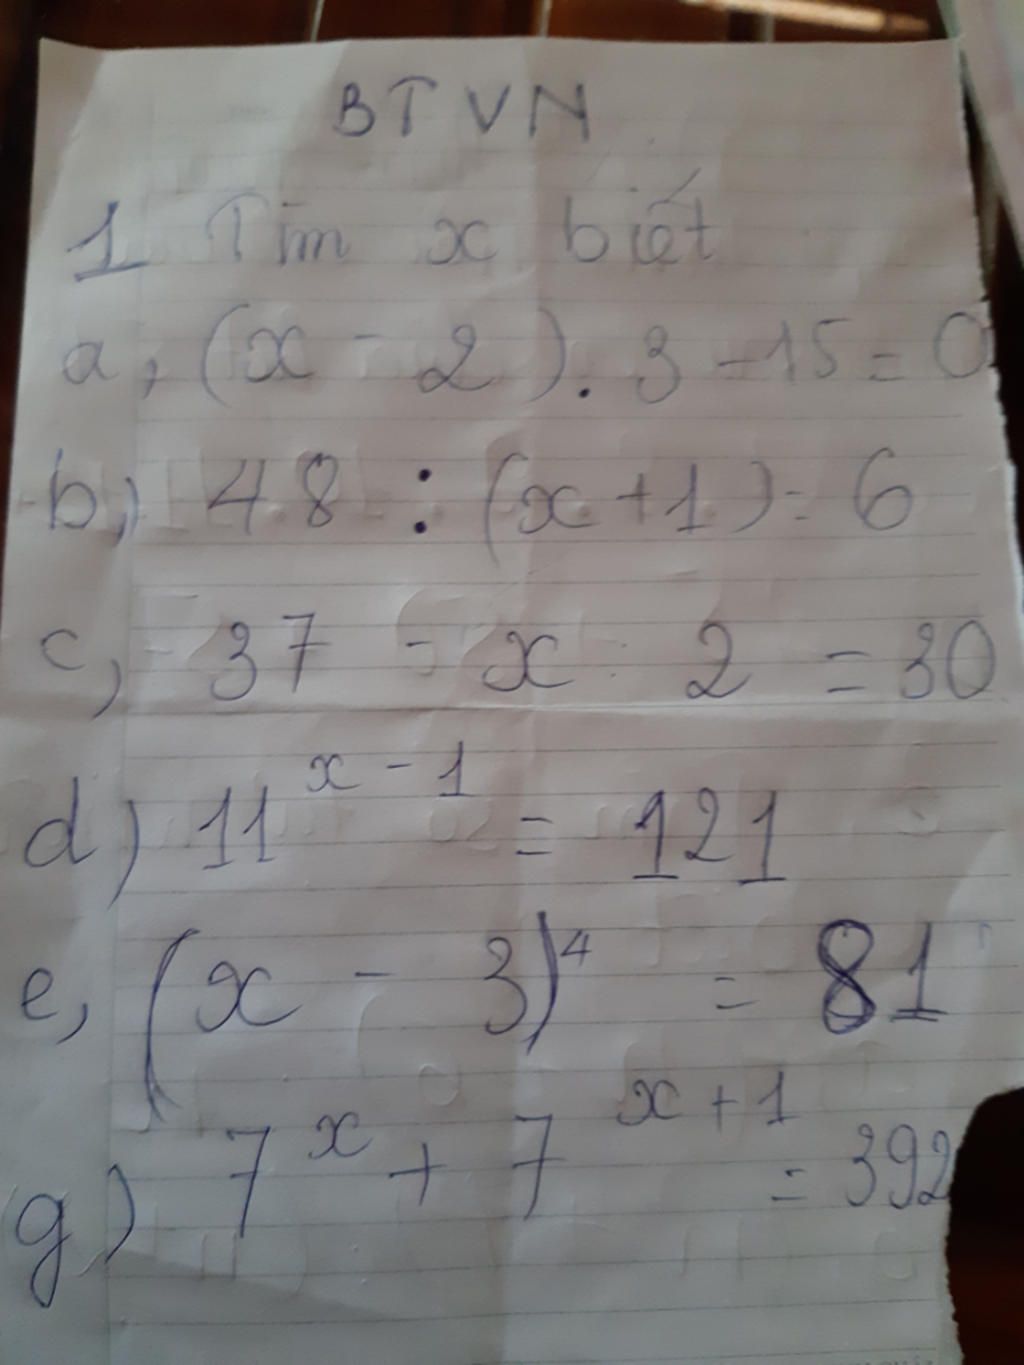 BTVN
1 Tìm x biết
a, (x - 2). 3 - 15 = 0
b, 48 : (x + 1) = 6
c, 37 - x . 2 = 30
d) 11^{x - 1} = 121
e, (x - 3)^4 = 81
g) 7^x + 7^{x + 1} = 392